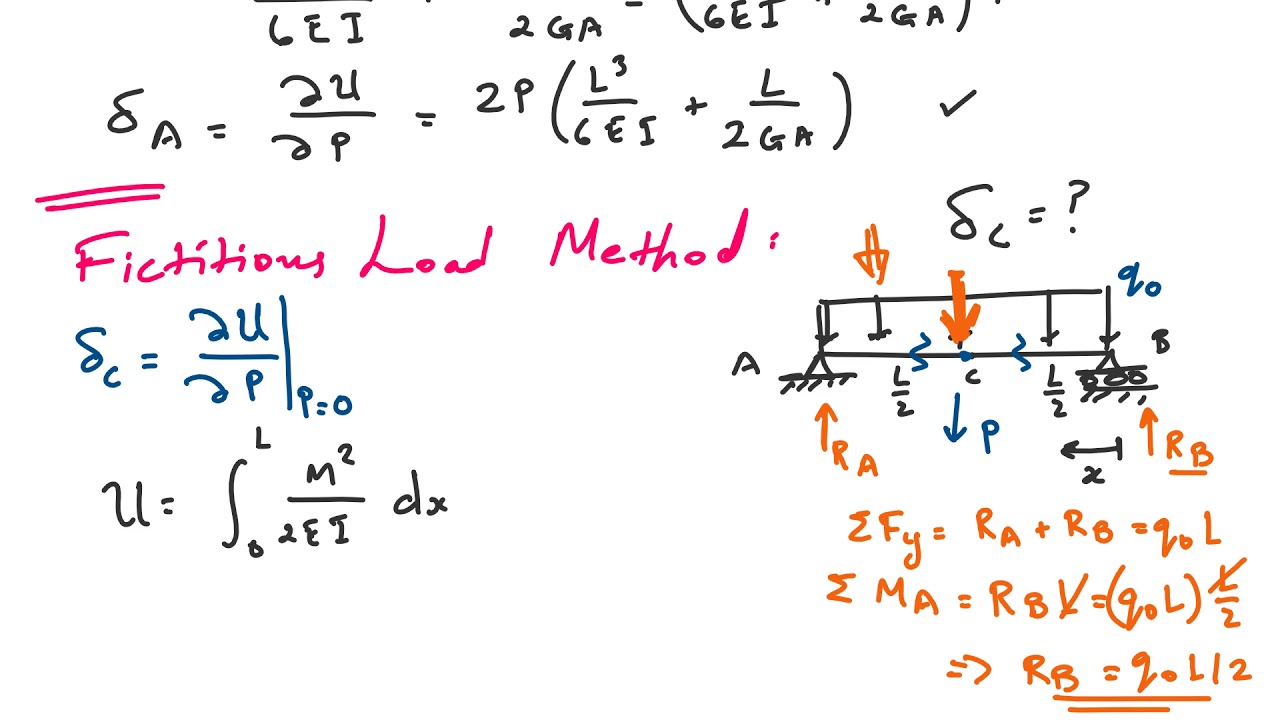 6EI 2GA = (6EI + 2GA)
δ_A = ∂U/∂P = 2P(L³/6EI + L/2GA) ✓
Fictitious Load Method:
δ_C = ?
q₀
δ_C = ∂U/∂P |P=0
A B
L/2 C L/2
P
R_A R_B
x
U = ∫₀ᴸ M²/2EI dx
ΣFy = R_A + R_B = q₀L
ΣM_A = R_B L = (q₀L) L/2
=> R_B = q₀L/2